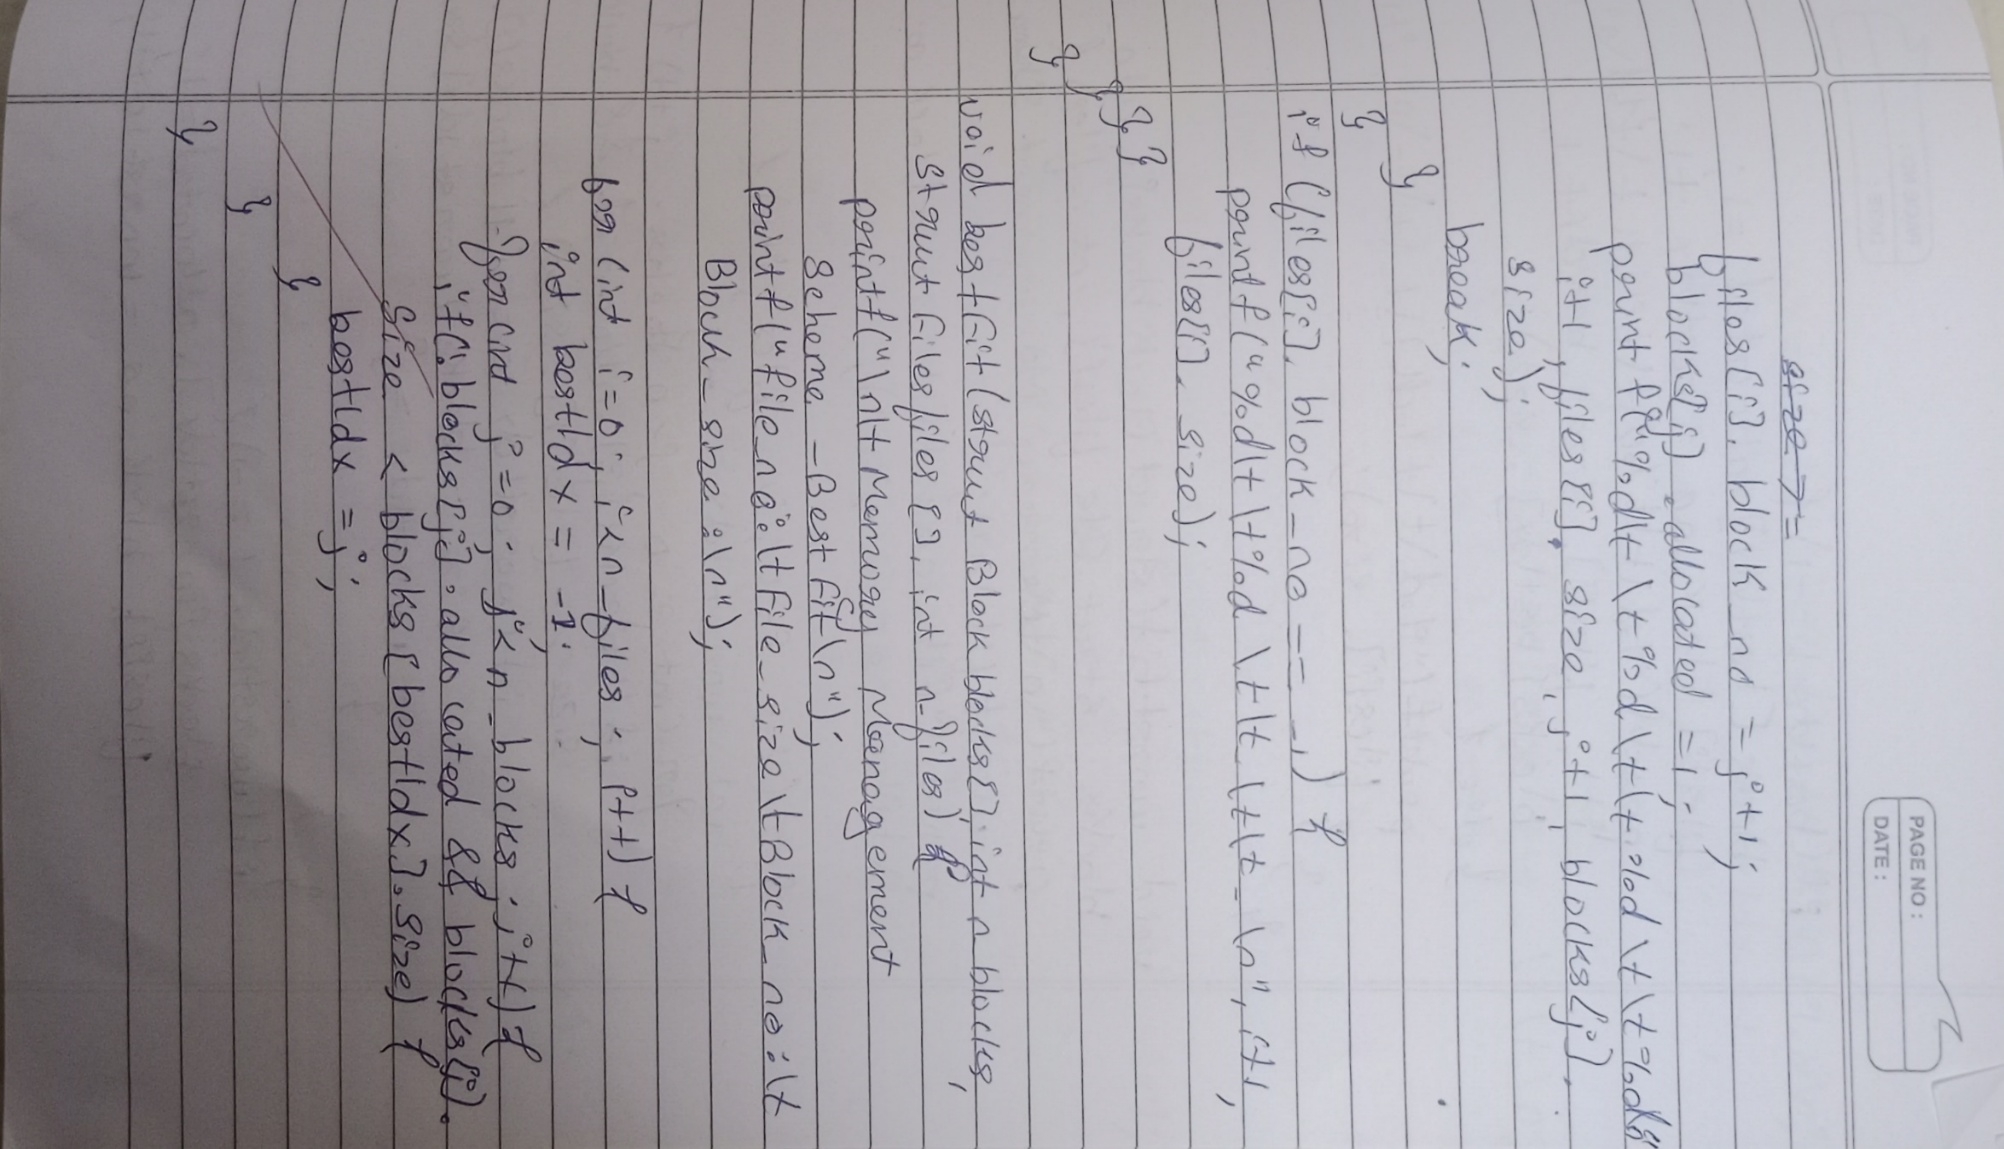 PAGE NO:
DATE:
files[i].block_no = j+1;
blocks[j].allocated = 1;
printf("%d\t\t%d\t\t%d\t\t%d\n",
i+1, files[i].size, j+1, blocks[j].
size);
break;
}
}
if (files[i].block_no == -1) {
printf("%d\t\t%d\t\t-\t\t-\n", i+1,
files[i].size);
}
}
}
}
void bestfit(struct Block blocks[], int n_blocks,
struct Files files[], int n_files) {
printf("\n\t Memory Management
Scheme - Best Fit\n");
printf("file_no:\tfile_size\tBlock_no:\t
Block_size:\n");
for (int i=0; i<n_files; i++) {
int bestIdx = -1;
for (int j=0; j<n_blocks; j++) {
if (!blocks[j].allocated && blocks[j].
size < blocks[bestIdx].size) {
bestIdx = j;
}
}
}